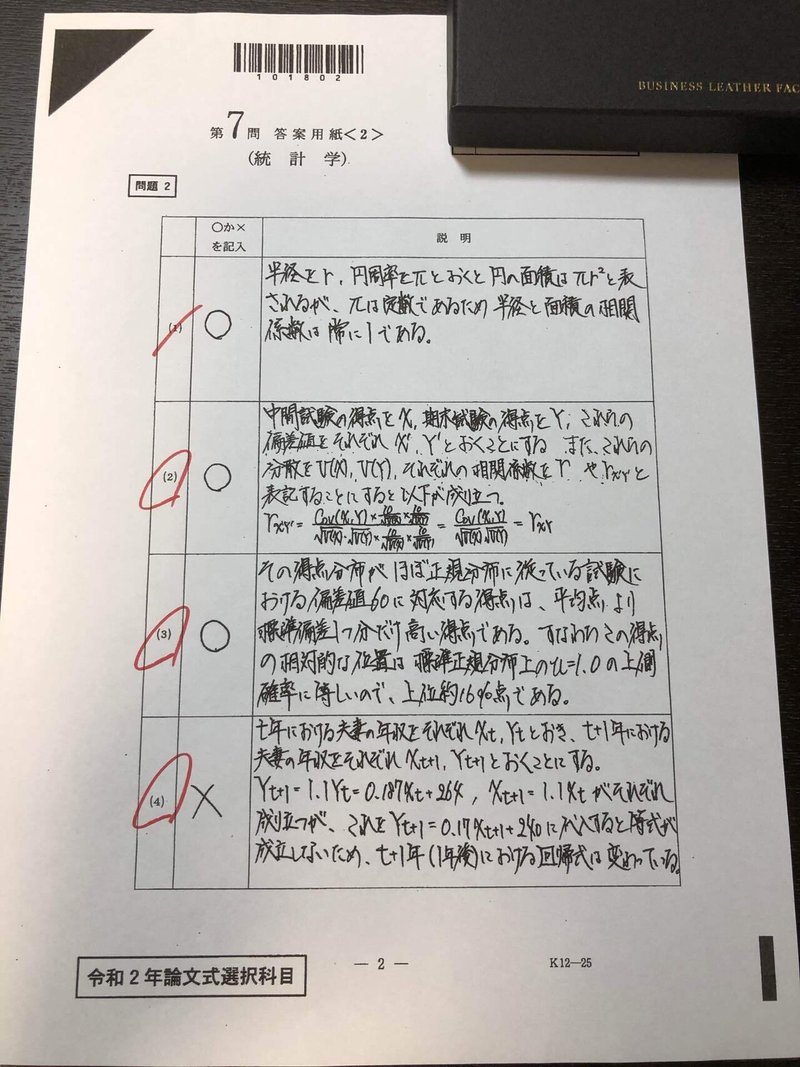 101802
BUSINESS LEATHER FAC
第7問 答案用紙<2>
(統計学)
問題 2
○か×
を記入
説明
(1)
○
半径をr, 円周率をπとおくと円の面積はπr²と表
されるが、πは定数であるため半径と面積の相関
係数は常に1である。
(2)
○
中間試験の得点をX, 期末試験の得点をY, これらの
偏差値をそれぞれX', Y'とおくことにする また、これらの
分散をV(X), V(Y), それぞれの相関係数をr や rx'y'と
表記することにすると以下が成り立つ。
rx'y' = = Cov(X,Y)/√V(X)√V(Y) = rxy
(3)
○
その得点分布がほぼ正規分布に従っている試験に
おける偏差値60に対応する得点は、平均点より
標準偏差1つ分だけ高い得点である。すなわちこの得点
の相対的な位置は標準正規分布上のu=1.0の上側
確率に等しいので、上位約16%点である。
(4)
×
t年における夫妻の年収をそれぞれXt, Ytとおき、t+1年における
夫妻の年収をそれぞれXt+1, Yt+1とおくことにする。
Yt+1 = 1.1Yt = 0.187Xt + 264, Xt+1 = 1.1Xt がそれぞれ
成り立つが、これをYt+1 = 0.17Xt+1 + 240に代入すると等式が
成立しないため、t+1年(1年後)における回帰式は変わっている。
令和2年論文式選択科目
— 2 —
K12—25